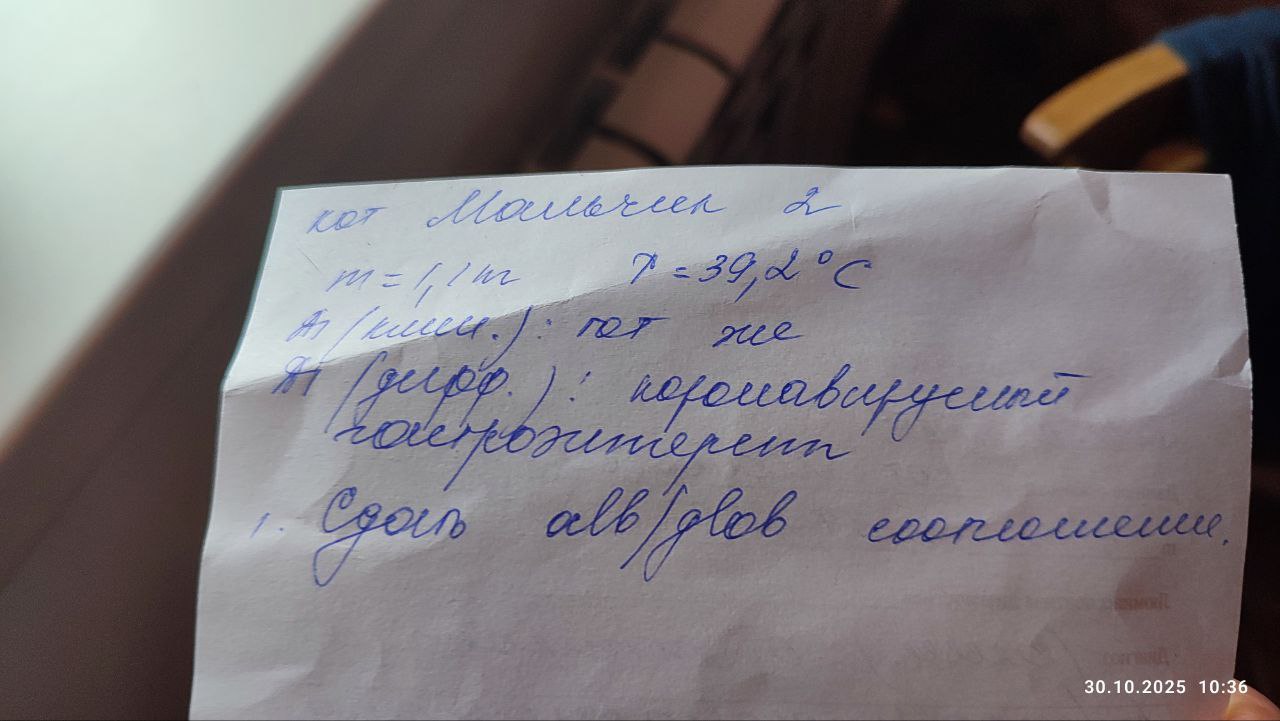 кот Мальчик 2
m = 1,1 кг T = 39,2°C
Дз (клин.): тот же
Дз (дифф.): коронавирусный
гастроэнтерит
1. Сдать alb/glob соотношение.
Диагноз
30.10.2025 10:36